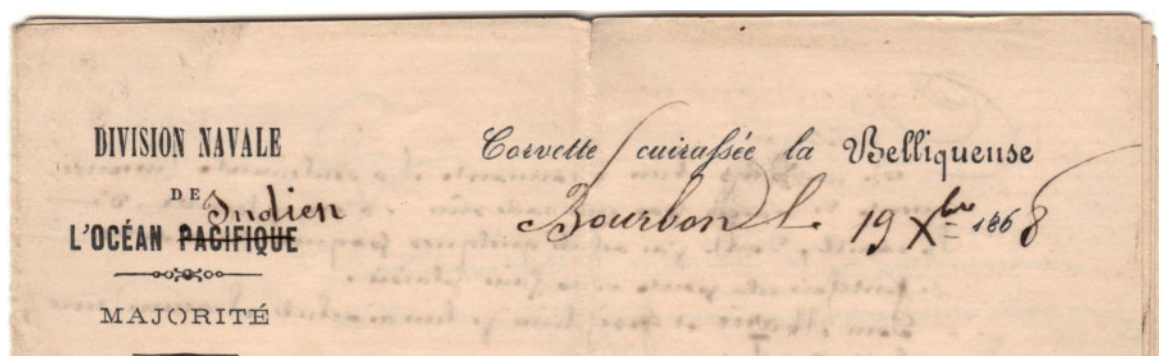 DIVISION NAVALE
DE
Indien
L'OCÉAN PACIFIQUE
MAJORITÉ
Corvette cuirassée la Belliqueuse
Bourbon l. 19 Xbre 1868